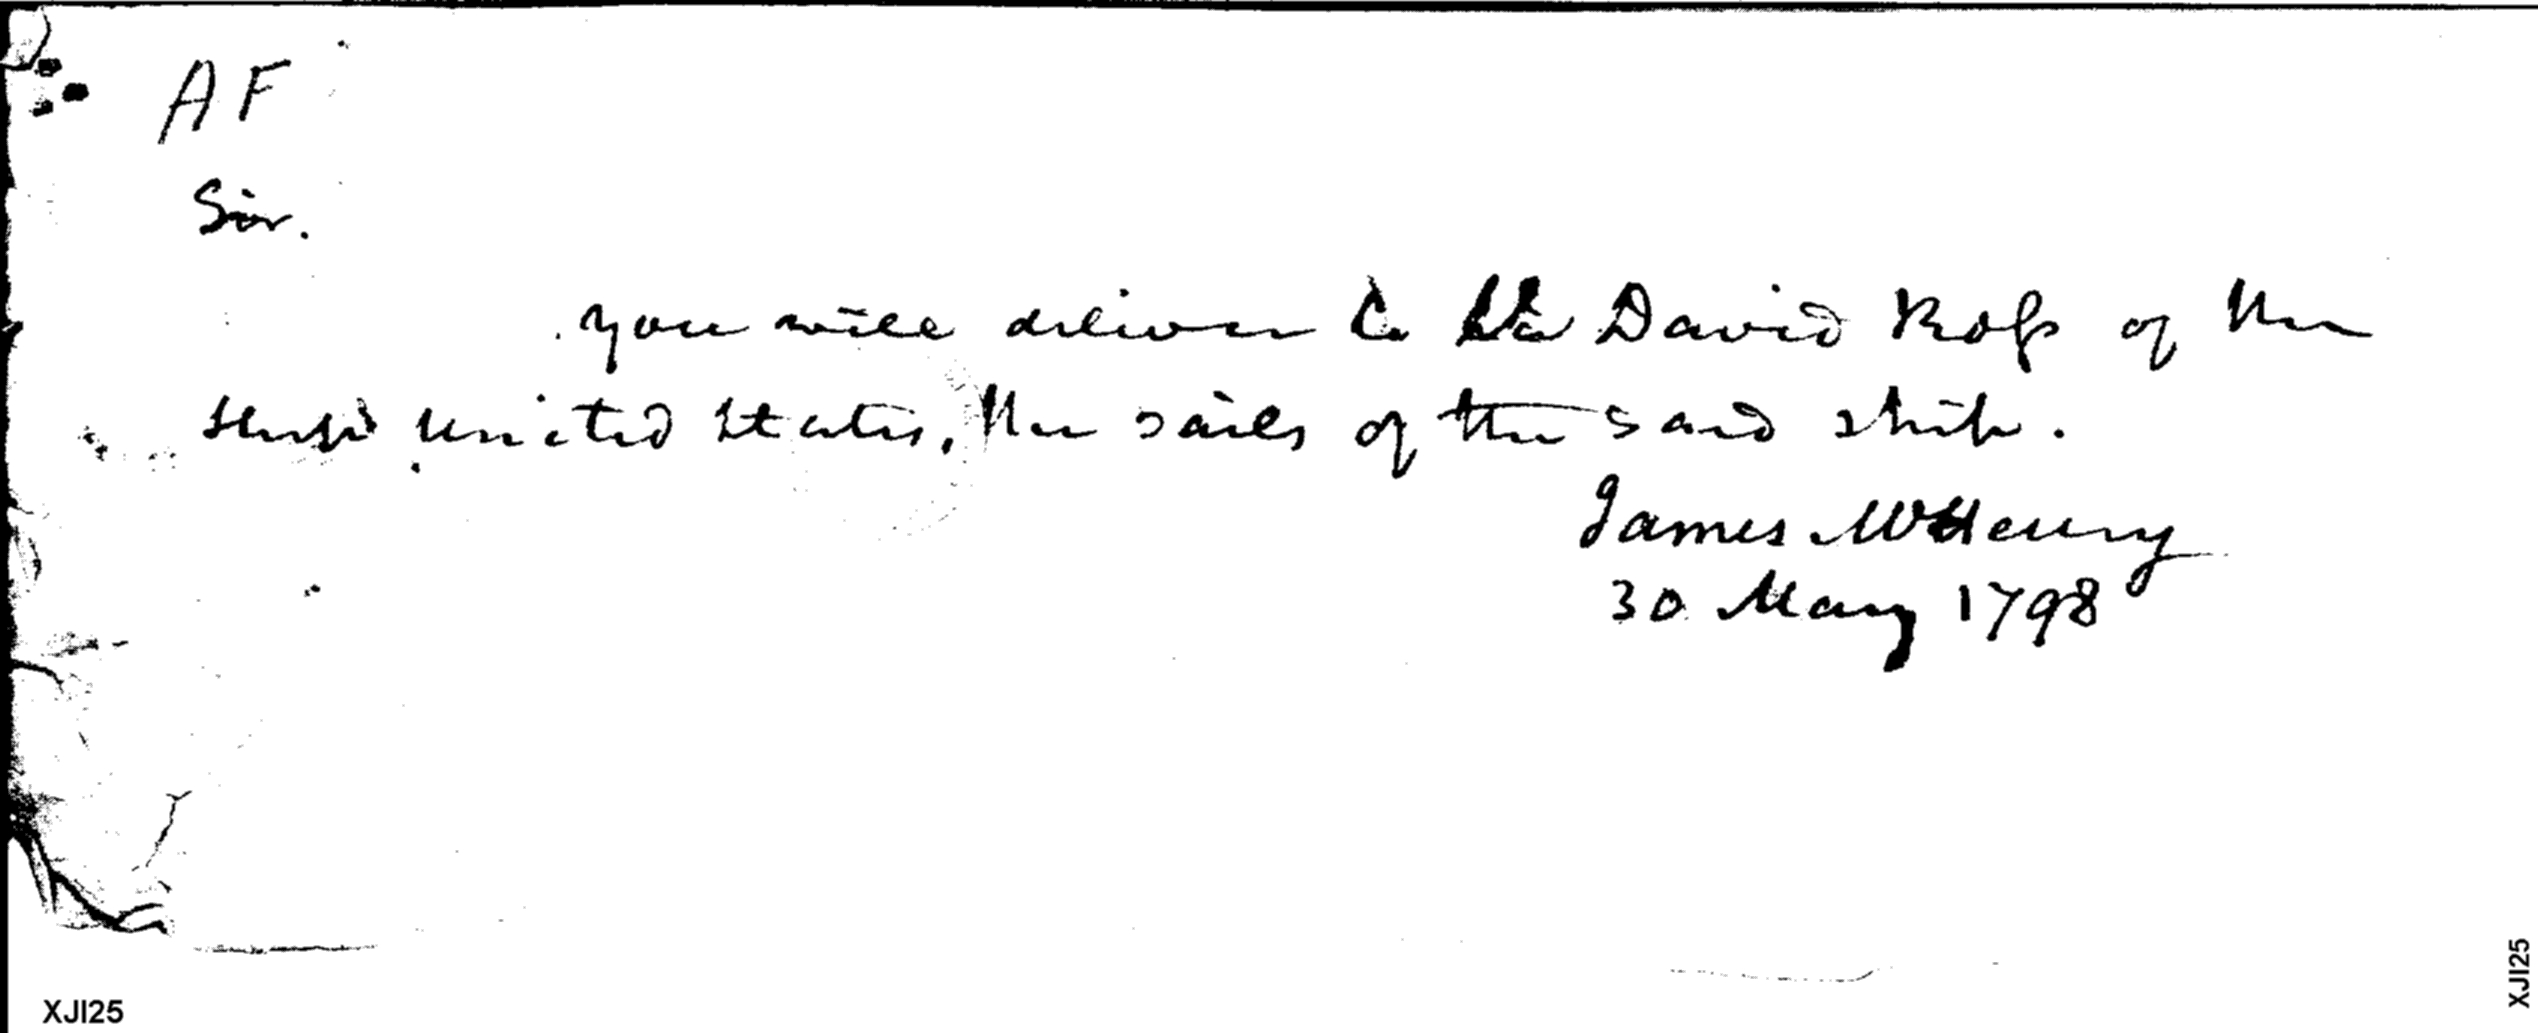 AF
Sir.
you will deliver to Lt David Ross of the
ship United States, the sails of the said ship.
James McHenry
30 May 1798
XJI25
XJI25